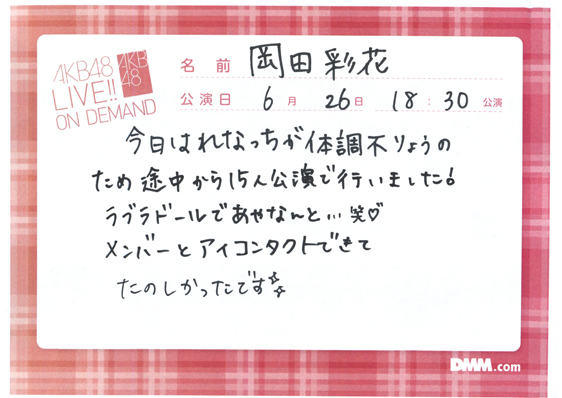 AKB48
LIVE!!
ON DEMAND
AKB
48
名前 岡田彩花
公演日 6月 26日 18:30 公演
今日はれなっちが体調不りょうの
ため途中から15人公演で行いました!
ラブラドールであやなんと... 笑♡
メンバーとアイコンタクトできて
たのしかったです☆
DMM.com